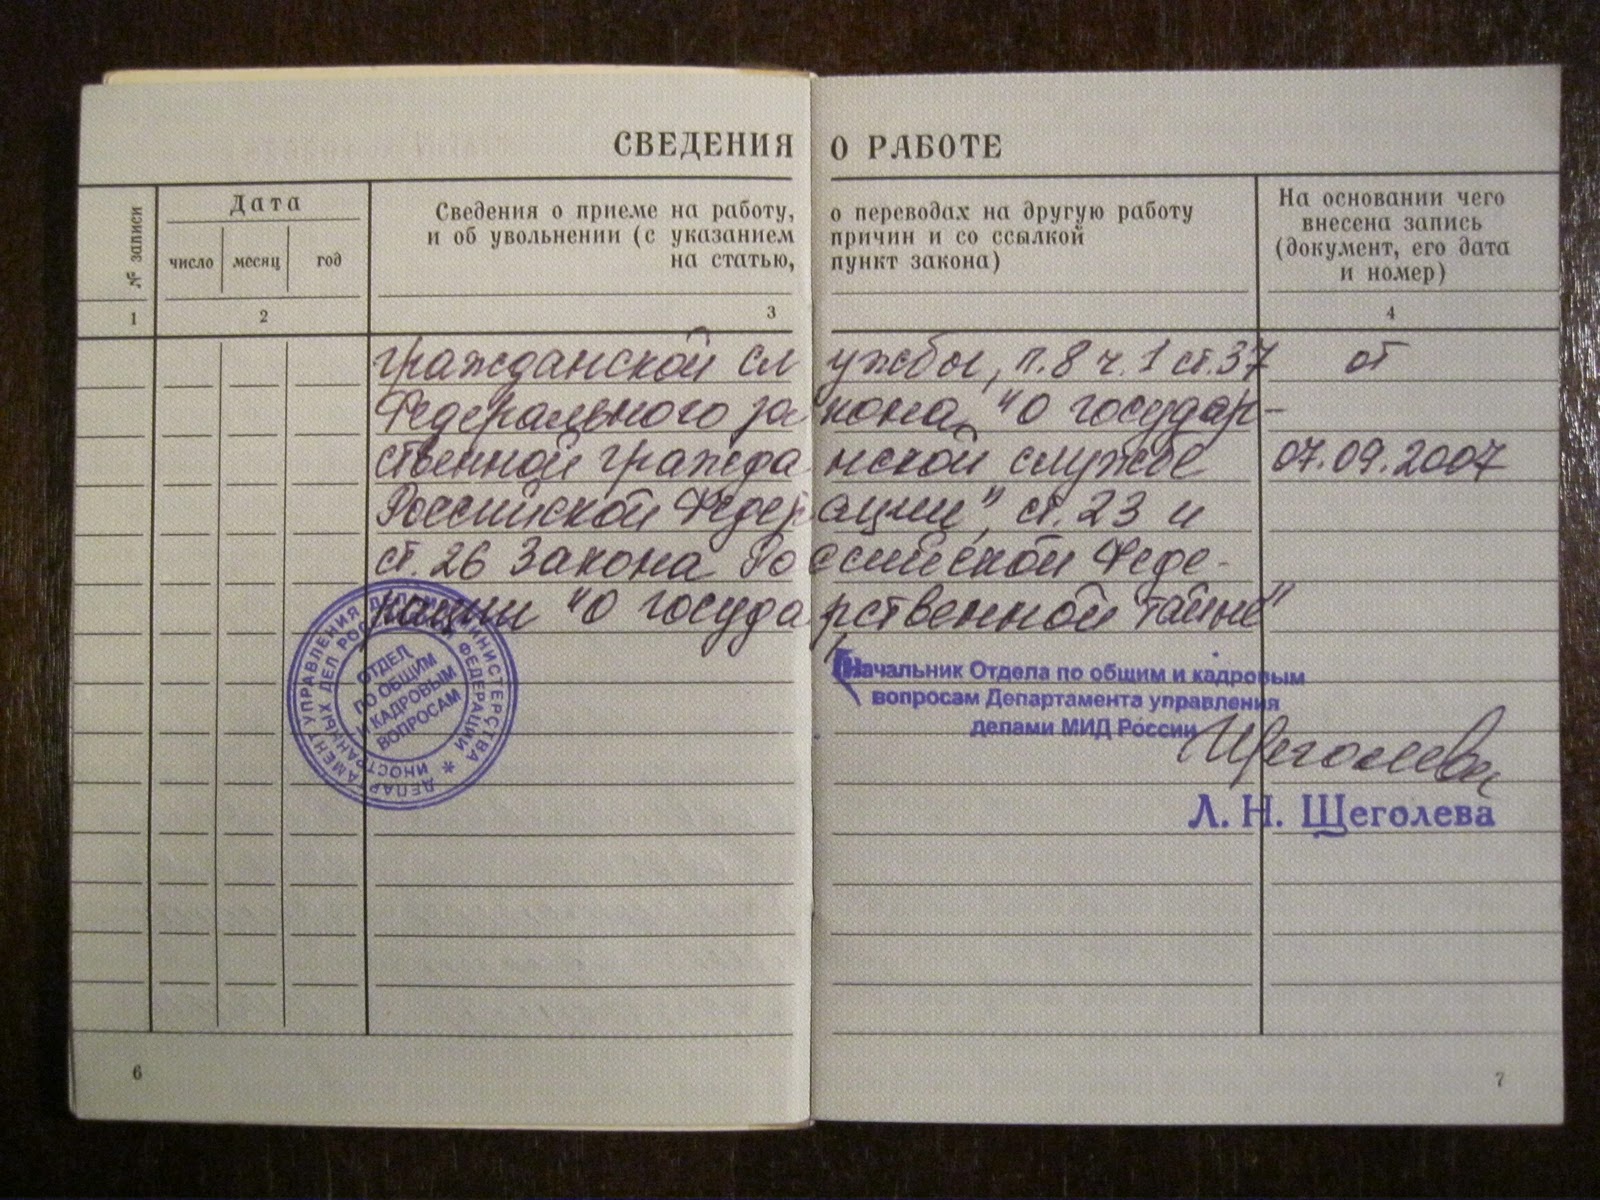 СВЕДЕНИЯ О РАБОТЕ
№ записи
Дата
число месяц год
Сведения о приеме на работу, о переводах на другую работу
и об увольнении (с указанием причин и со ссылкой
на статью, пункт закона)
На основании чего
внесена запись
(документ, его дата
и номер)
1 2 3 4
гражданской службы, п.8 ч.1 ст.37 от
Федерального закона "О государ-
ственной гражданской службе 07.09.2007
Российской Федерации", ст.23 и
ст.26 Закона Российской Феде-
рации "О государственной тайне"
ДЕПАРТАМЕНТ УПРАВЛЕНИЯ ДЕЛАМИ МИНИСТЕРСТВА
ИНОСТРАННЫХ ДЕЛ РОССИЙСКОЙ ФЕДЕРАЦИИ
ОТДЕЛ
ПО ОБЩИМ
И КАДРОВЫМ
ВОПРОСАМ
Начальник Отдела по общим и кадровым
вопросам Департамента управления
делами МИД России
Щеголева
Л. Н. Щеголева
6
7